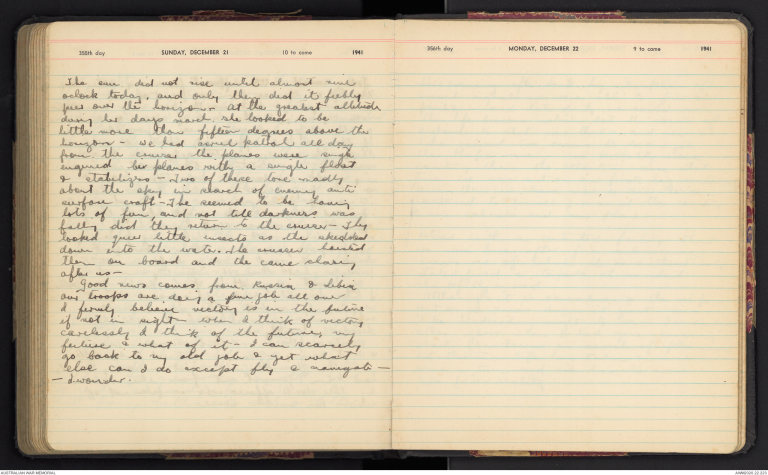 355th day SUNDAY, DECEMBER 21 10 to come 1941
The sun did not rise until almost nine
oclock today, and only then did it feebly
peer over the horizon. At the greatest altitude
during her days march she looked to be
little more than fifteen degrees above the
horizon - we had aerial patrol all day
from the cruiser the planes were single
engined bi planes with a single float
& stabilizers - Two of these tore madly
about the sky in search of enemy anti
surface craft - The seemed to be having
lots of fun, and not till darkness was
falling did they return to the cruiser - They
looked queer little insects as the skedded
down into the water. The cruiser hoisted
them on board and the came chasing
after us -
Good news comes from Russia & Libia
our troops are doing a fine job all over
I firmly believe victory is in the future
if not in sight when I think of victory
carelessly I think of the future, my
future & what of it - I can scarcely
go back to my old job & yet what
else can I do except fly & navigate -
- I wonder.
356th day MONDAY, DECEMBER 22 9 to come 1941
AUSTRALIAN WAR MEMORIAL